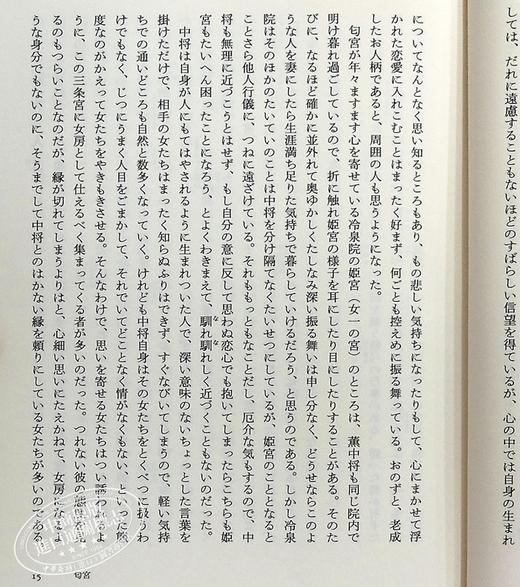 しては、だれに遠慮することもないほどのすばらしい信望を得ているが、心の中では自身の生まれ
についてなんとなく思い知るところもあり、もの悲しい気持ちになったりもして、心にまかせて浮
かれた恋愛に入れこむことはまったく好まず、何ごとも控えめに振る舞っている。おのずと、老成
したお人柄であると、周囲の人も思うようになった。
匂宮が年々ますます心を寄せている冷泉院の姫宮（女一の宮）のところは、薫中将も同じ院内で
明け暮れ過ごしているので、折に触れ姫宮の様子を耳にしたり目にしたりすることがある。そのた
びに、なるほど確かに並外れて奥ゆかしくたしなみ深い振る舞いは申し分なく、どうせならこのよ
うな人を妻にしたら生涯満ち足りた気持ちで暮らしていけるだろう、と思うのである。しかし冷泉
院はそのほかのたいていのことは中将を分け隔てなくたいせつにしているが、姫宮のこととなると
ことさら他人行儀に、つねに遠ざけている。それももっともなことだし、厄介な気もするので、中
将も無理に近づこうとはせず、もし自分の意に反して思わぬ恋心でも抱いてしまったらこちらも姫
宮もたいへん困ったことになろう、とよくわきまえて、馴れ馴れしく近づくこともないのだった。
中将は自身が人にもてはやされるように生まれついた人で、深い意味のないちょっとした言葉を
掛けただけで、相手の女たちはまったく知らぬふりはできず、すぐなびいてしまうので、軽い気持
ちでの通いどころも自然と数多くなっていく。けれども中将自身はその女たちをとくべつに扱うわ
けでもなく、じつにうまく人目をごまかして、それでいてどことなく情がなくもない、といった態
度なのがかえって女たちをやきもきさせる。そんなわけで、思いを寄せる女たちはつい誘われるよ
うに、この三条宮に女房として仕えるべく集まってくる者が多いのだった。つれない彼の態度を見
るのもつらいことなのだが、縁が切れてしまうよりはと、心細い思いにたえかねて、女房になるよ
うな身分でもないのに、そうまでして中将とのはかない縁を頼りにしている女たちが多いのである
15 匂宮